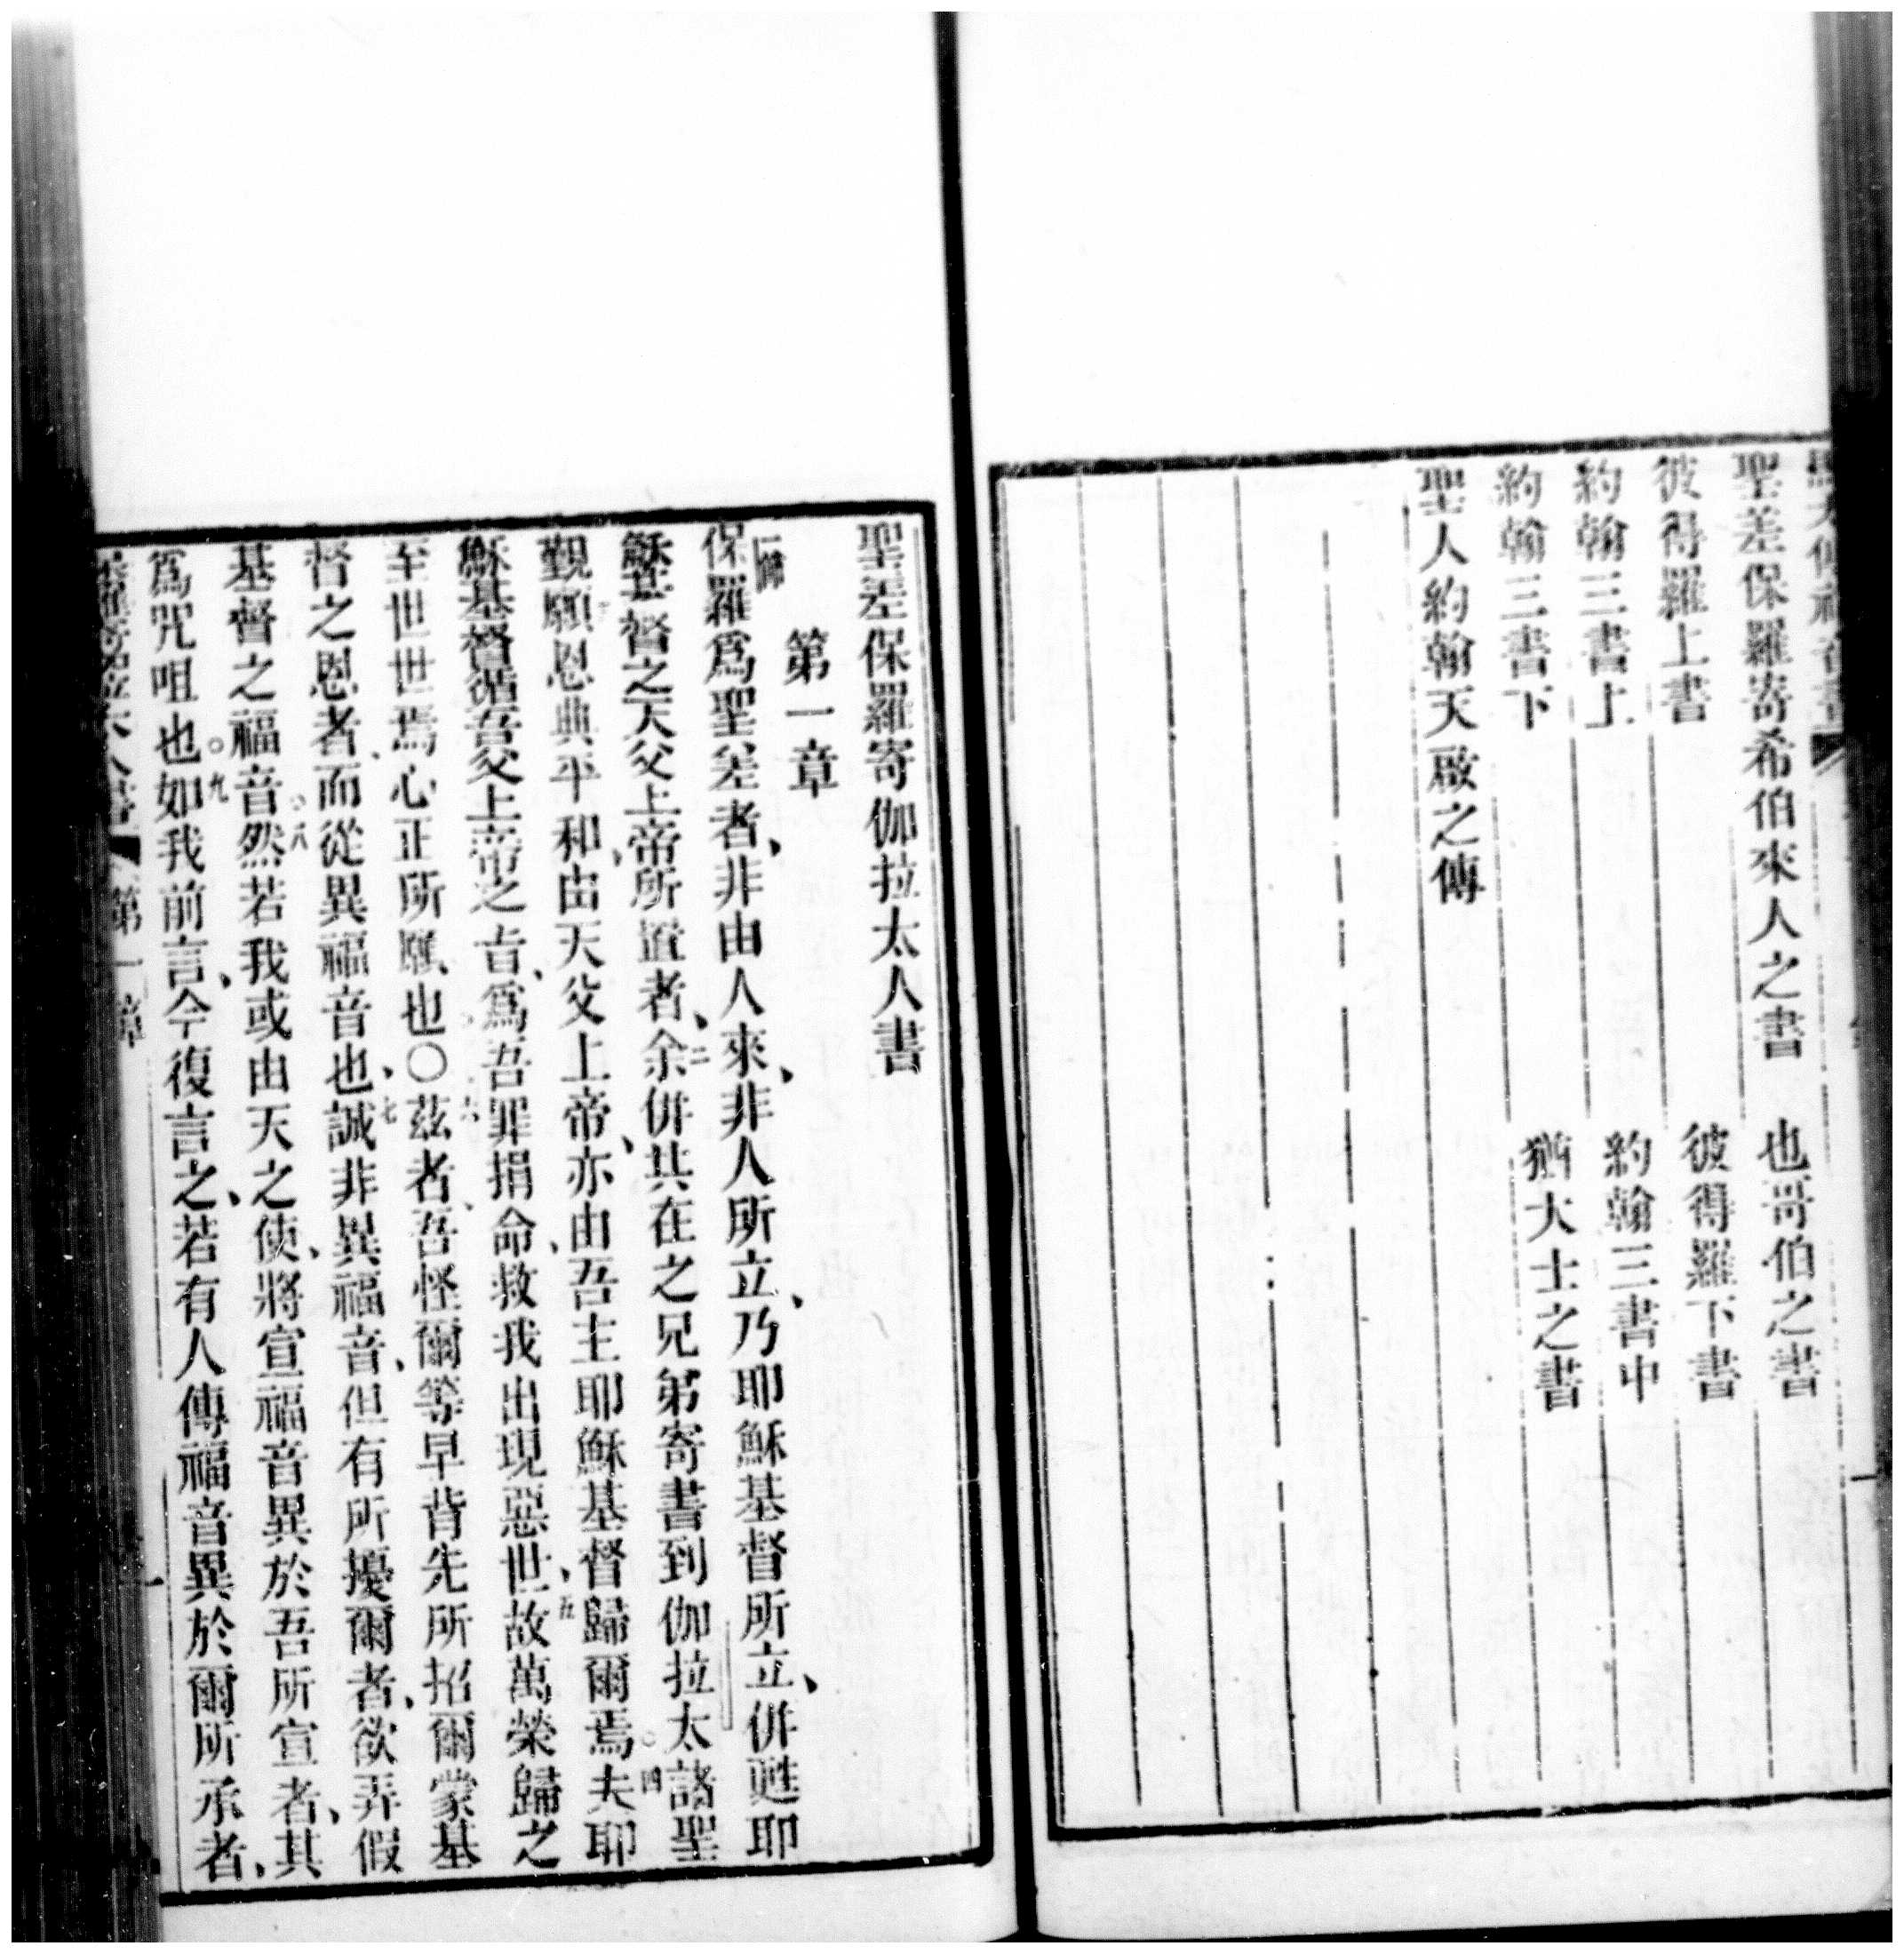 聖差保羅寄希伯來人之書　也哥伯之書
彼得羅上書　彼得羅下書
約翰三書上　約翰三書中
約翰三書下　猶大士之書
聖人約翰天啟之傳
聖差保羅寄伽拉太人書
第一章
保羅爲聖差者、非由人來、非人所立、乃耶穌基督所立、併甦耶
穌基督之天父上帝所置者、二余併共在之兄弟寄書到伽拉太諸聖
覲願恩典平和、由天父上帝、亦由吾主耶穌基督歸爾焉。四夫耶
穌基督循吾父上帝之旨、爲吾罪捐命、救我出現惡世、五故萬榮歸之
至世世焉心正所願也〇六茲者、吾怪爾等早背先所招爾蒙基
督之恩者、而從異福音也、七誠非異福音、但有所擾爾者、欲弄假
基督之福音。八然若我或由天之使、將宣福音異於吾所宣者、其
爲咒咀也。九如我前言、今復言之、若有人傳福音異於爾所承者、
第一章
一